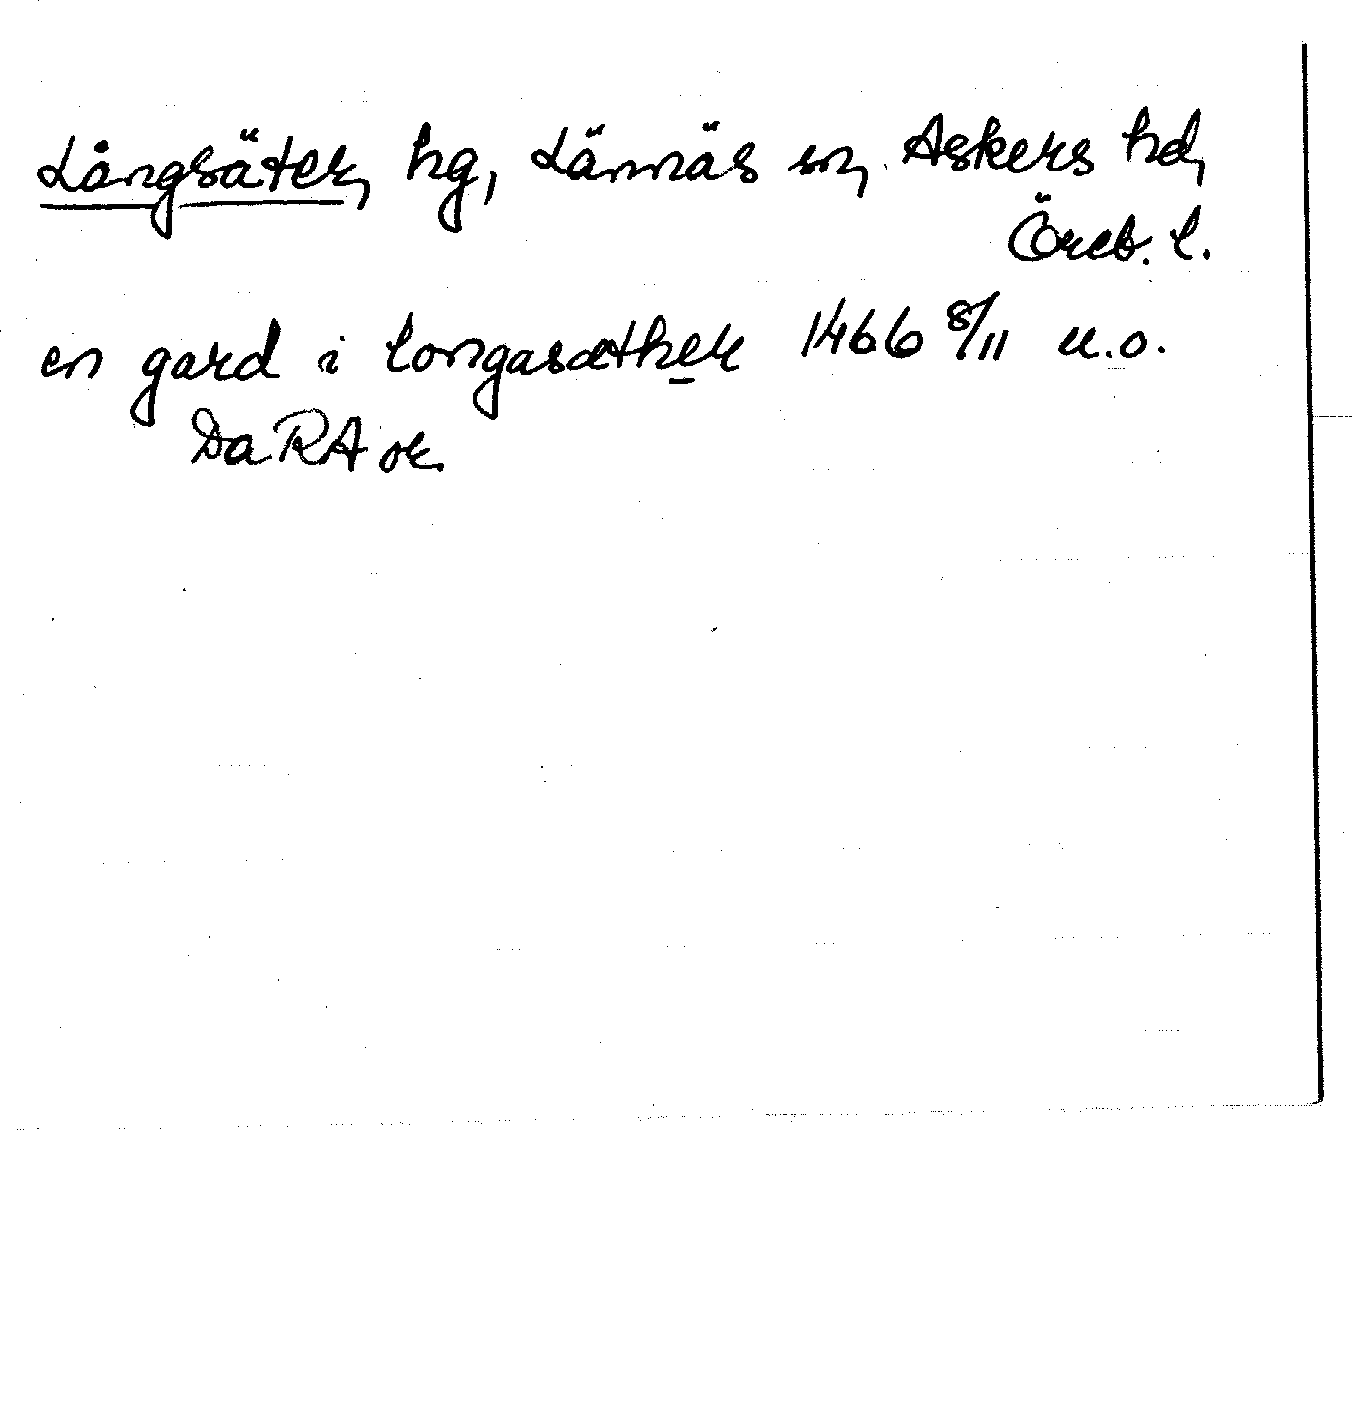 Långsäter, hg, Lännäs sn, Askers hd,
Öreb. l.
en gard i longasæther 1466 8/11 u.o.
DaRA or.